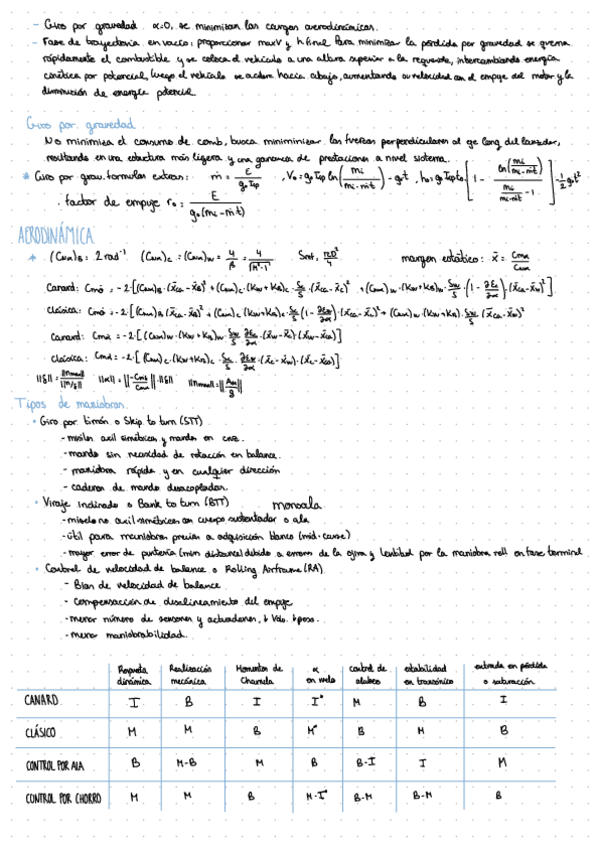 - Giro por gravedad α=0, se minimizan las cargas aerodinámicas.
- Fase de trayectoria en vacío: proporcionar maxV y h final. Para minimizar la pérdida por gravedad se quema
rápidamente el combustible y se coloca el vehículo a una altura superior a la requerida, intercambiando energía
cinética por potencial, luego el vehículo se acelera hacia abajo, aumentando su velocidad con el empuje del motor y la
disminución de energía potencial.
Giro por gravedad
No minimiza el consumo de comb, busca miniminizar las fuerzas perpendiculares al eje long del lanzador,
resultando en una estructura más ligera y una ganancia de prestaciones a nivel sistema.
* Giro por grav. formulas extras: ṁ = E / g₀ Isp , V₀ = g₀ Isp ln( mi / mi-ṁt ) - g₀t , h₀ = g₀ Isp t₀ [ 1 - ln(mi / mi-ṁt) / (mi / mi-ṁt - 1) ] - 1/2 g₀t²
. factor de empuje r₀ = E / g₀(mi-ṁt)
AERODINÁMICA
margen estático: x̄ =
Tipos de maniobras
• Giro por timón o Skip to turn (STT)
- misiles axil simétricos y mandos en cruz.
- mando sin necesidad de rotación en balance.
- maniobra rápida y en cualquier dirección
- cadenas de mando desacopladas.
• Viraje inclinado o Bank to turn (BTT) monoala
- miseles no axil-simétricos con cuerpo sustentador o ala
- útil para maniobras previas a adquisición blanco (mid-curse)
- mayor error de puntería (min distancia) debido a errores de la ojiva y lentitud por la maniobra roll en fase terminal
• Control de velocidad de balance o Rolling Airframe (RA)
- Bias de velocidad de balance
- compensación de desalineamiento del empuje
- menor número de sensores y actuadores, ↓ Vol. ↓ peso.
- menor maniobrabilidad.
Respuesta dinámica Realización mecánica Momentos de Charnela α en vuelo control de alabeo estabilidad en transónico entrada en pérdida o saturación
CANARD I B I I* M B I
CLÁSICO M M B M* B M B
CONTROL POR ALA B M-B M B B-I I M
CONTROL POR CHORRO M M B M-I* B-M B-M B